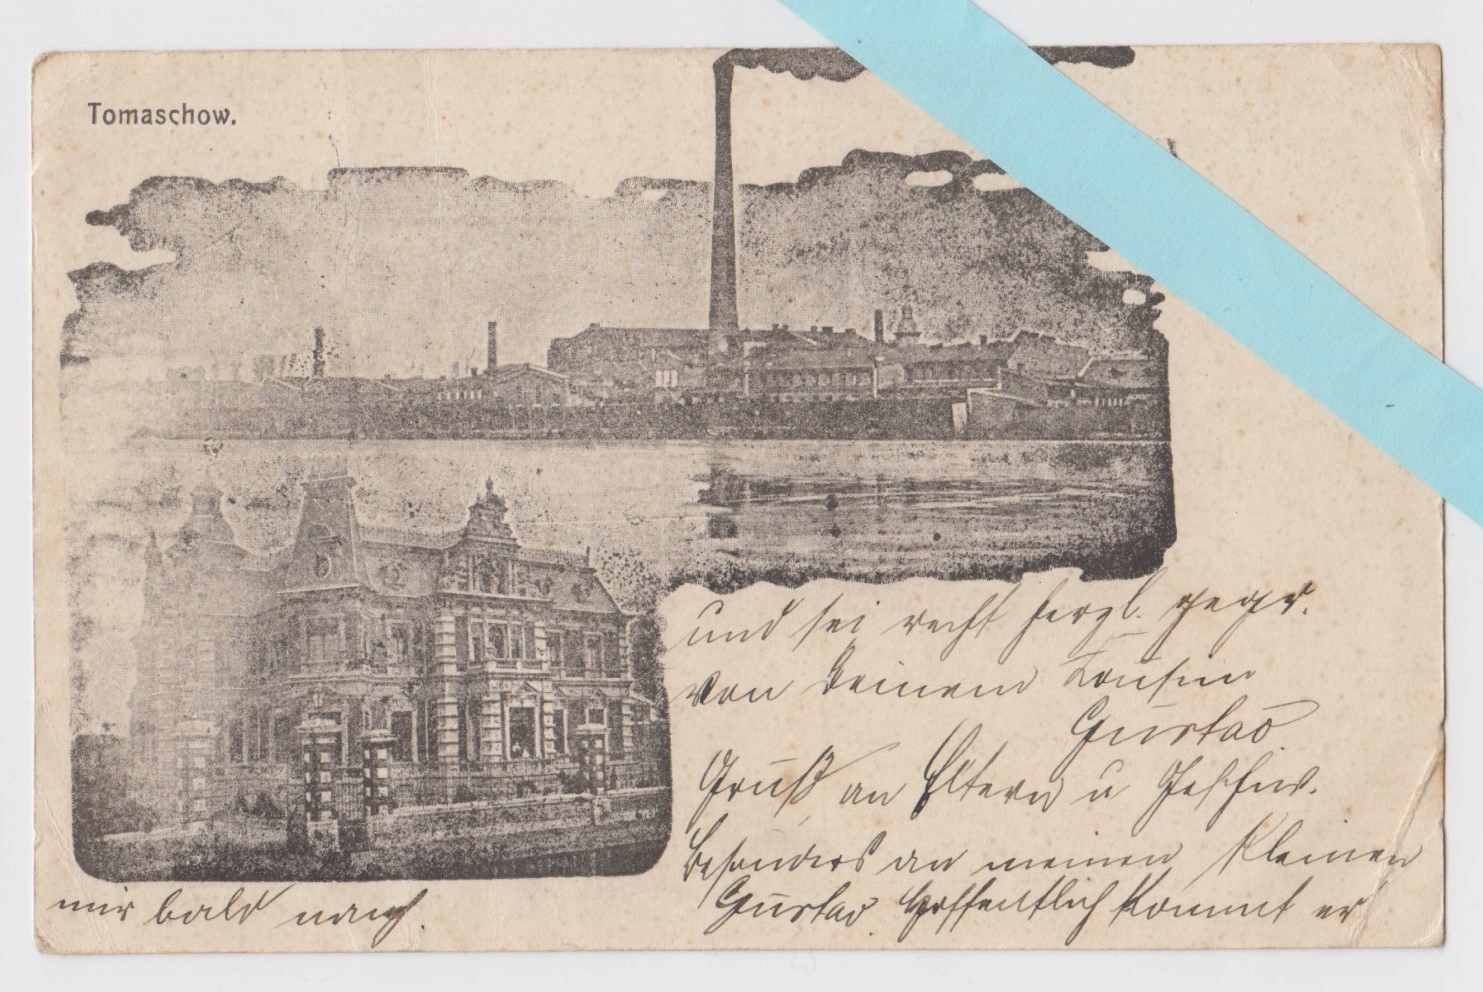 Tomaschow.
und sei recht herzl. gegr.
von Deinem Cousin
Gustav
Gruß an Eltern u Geschw.
besonders an meinen kleinen
Gustav. Hoffentlich kommt er
mir bald nach.